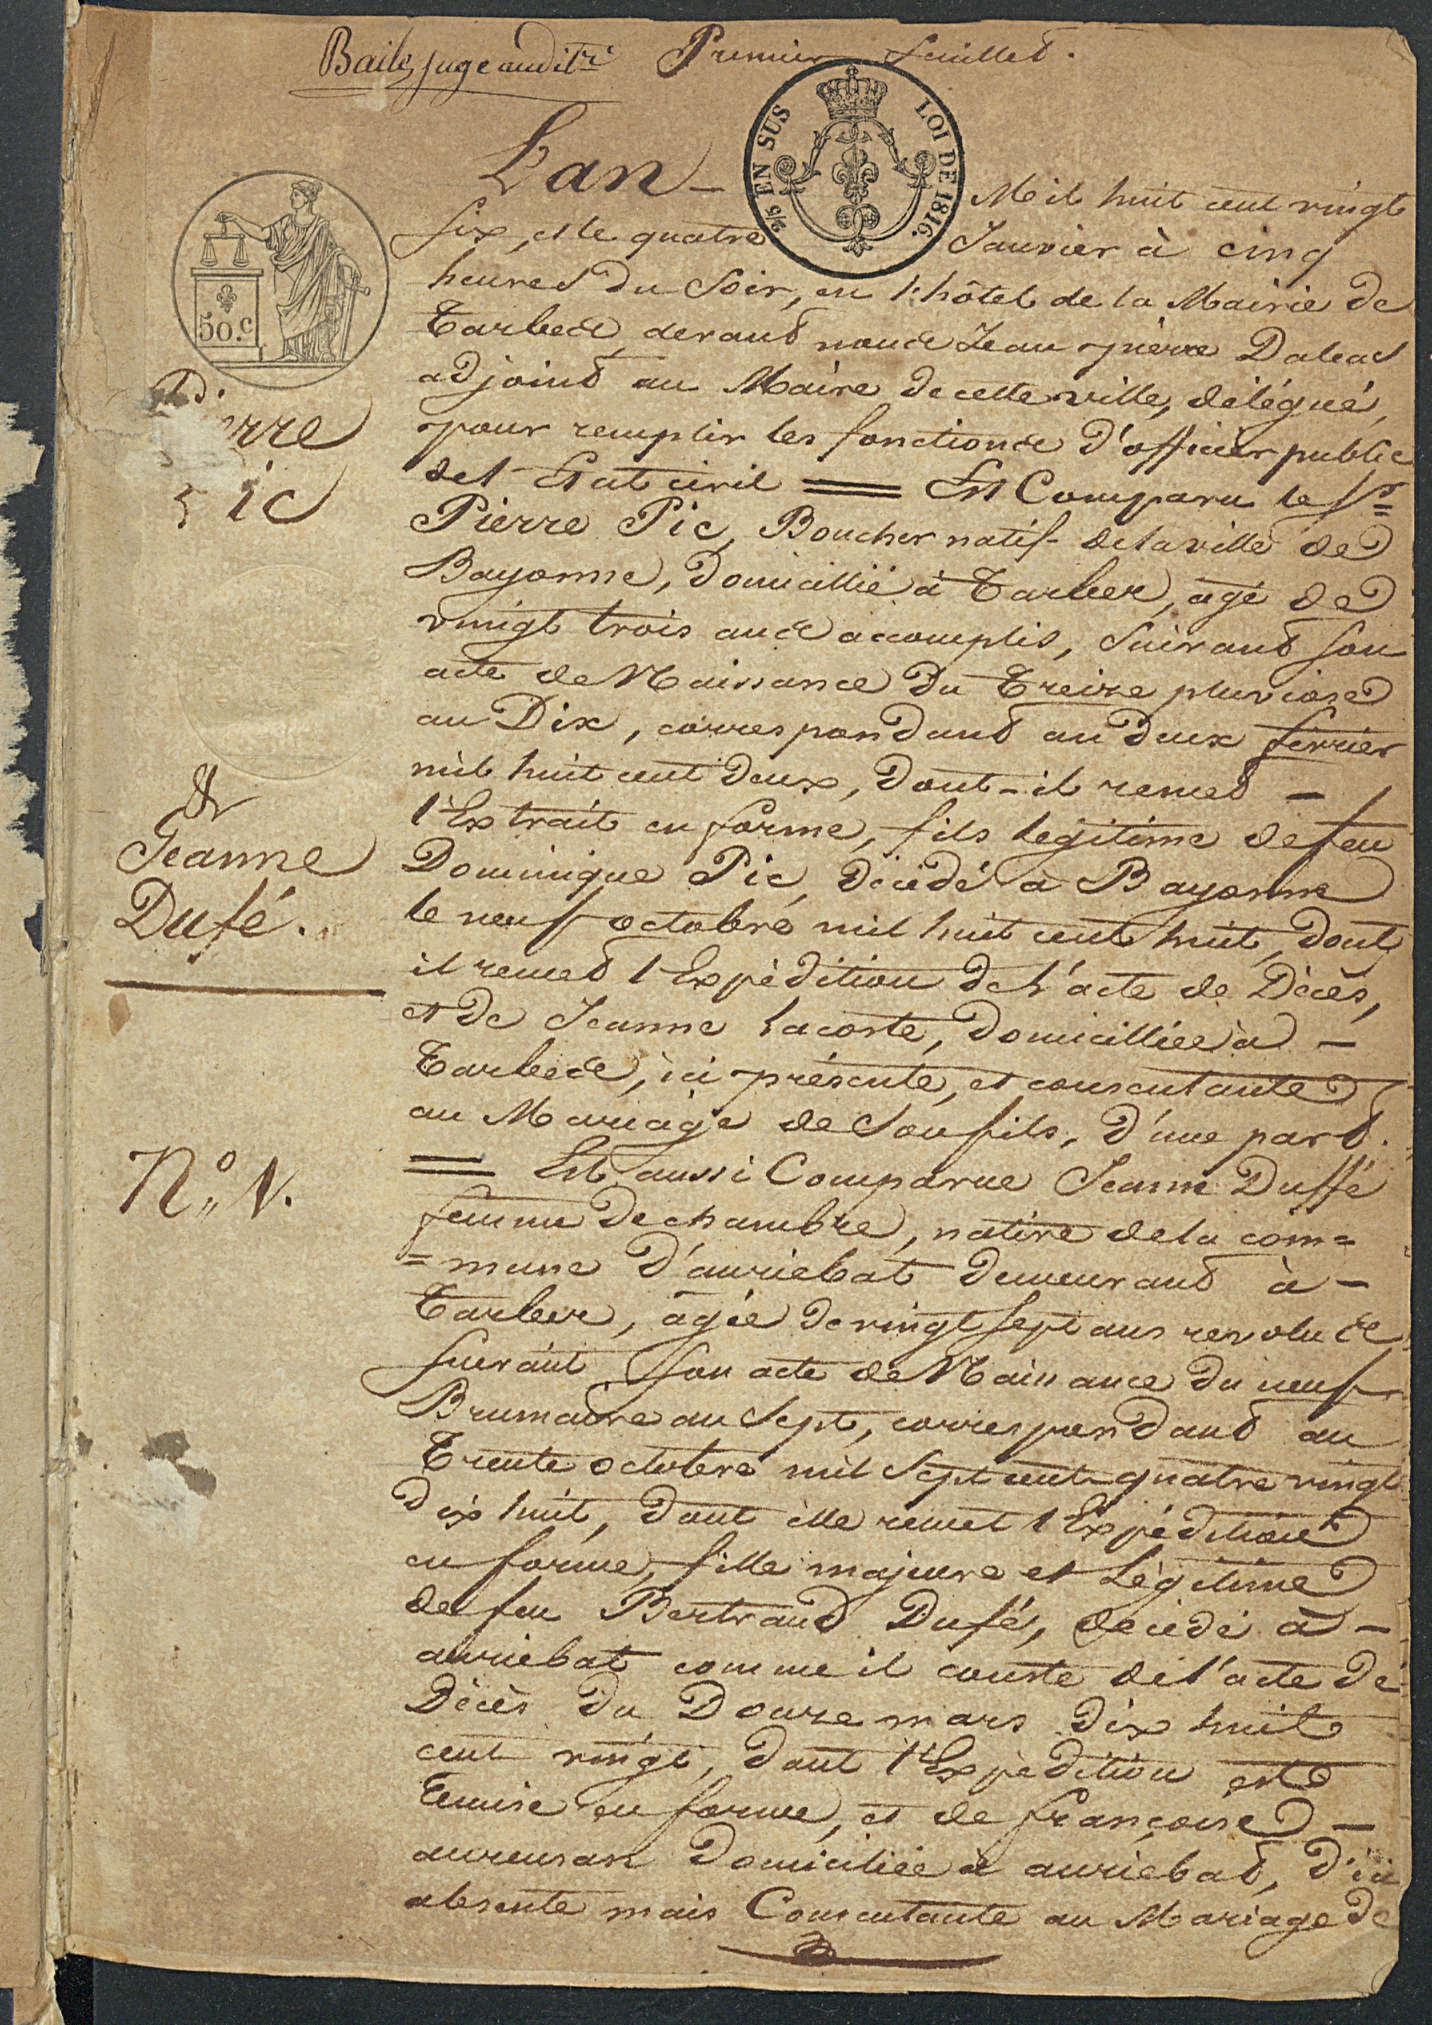 Baile juge audit.r Premier feuillet.
2/5 EN SUS LOI DE 1816.
50.c
Pierre
Pic
&
Jeanne
Dufé.
N.o 1.
L'an — Mil huit cent vingt
six, et le quatre Janvier à cinq
heures du Soir, en l'hôtel de la Mairie de
Tarbes, devant nous Jean pierre Daleas
adjoint au Maire de cette ville, délégué,
pour remplir les fonctions d'officier public
de l'Etat civil == Est Comparu le Sr
Pierre Pic, Boucher natif de la ville de
Bayonne, domicillié à Tarbes, agé de
vingt trois ans accomplis, Suivant son
acte de Naissance du Treize pluviose
an Dix, correspondant au deux février
mil huit cent deux, dont-il remet —
l'Extrait en forme, fils legitime de feu
Dominique Pic, décédé à Bayonne
le neuf octobre mil huit cent huit, dont
il remet l'Expédition de l'acte de Décès,
et de Jeanne Lacoste, domicilliée à —
Tarbes, ici présente, et consentante
au Mariage de Son fils, d'une part.
== Est aussi Comparue Jeanne Duffé
femme de chambre, native de la com=
=mune d'auriebat demeurant à —
Tarbes, âgée de vingt sept ans revolus
suivant son acte de Naissance du neuf
Brumaire an Sept, correspondant au
Trente octobre mil Sept cent quatre vingt
dix huit, dont elle remet l'Expédition
en forme, fille majeure et Légitime
de feu Bertrand Dufé, décédé à —
auriebat comme il conste de l'acte de
Décès du Douze mars dix huit
cent vingt, dont l'Expédition est
remise en forme, et de françoise —
aureusan domiciliée à auriebat, d'ici
absente mais Consentante au Mariage de